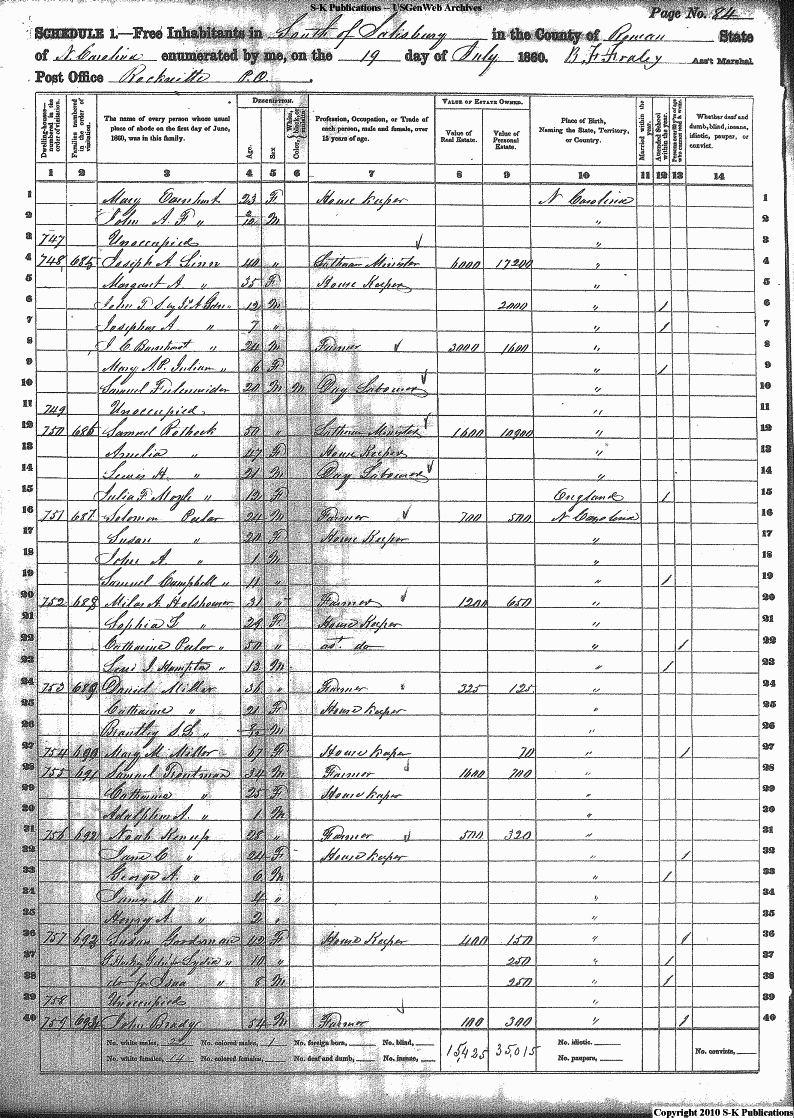 S-K Publications -- USGenWeb Archives
Page No. 84
SCHEDULE 1.—Free Inhabitants in South of Salisbury in the County of Rowan State
of N. Carolina enumerated by me, on the 19 day of July 1860. B F Fraley Ass't Marshal.
Post Office Rockville P.O.
Dwelling-houses—numbered in the order of visitation. Families numbered in the order of visitation. The name of every person whose usual place of abode on the first day of June, 1860, was in this family. DESCRIPTION. Age. Sex. Color, White, black, or mulatto. Profession, Occupation, or Trade of each person, male and female, over 15 years of age. VALUE OF ESTATE OWNED. Value of Real Estate. Value of Personal Estate. Place of Birth, Naming the State, Territory, or Country. Married within the year. Attended School within the year. Persons over 20 y'rs of age who cannot read & write. Whether deaf and dumb, blind, insane, idiotic, pauper, or convict.
1 2 3 4 5 6 7 8 9 10 11 12 13 14
1 Mary Earnhart 23 F House Keeper N Carolina 1
2 John A. F " M " 2
3 747 Unoccupied " 3
4 748 685 Joseph A Linn 40 " Lutheran Minister 6000 17200 " 4
5 Margaret A " 35 F House Keeper " 5
6 John F 12 M 2000 " 1 6
7 Josephus A " 7 " " 1 7
8 J C Barnhart " 24 M Farmer 3000 1600 " 8
9 Mary A.P. Julian " 6 F " 1 9
10 Samuel Fulenwider 20 M M Day Labourer " 10
11 749 Unoccupied " 11
12 750 686 Samuel Rothrock 50 " Lutheran Minister 1600 10900 " 12
13 Amelia " 47 F House Keeper " 13
14 Lewis H. " 21 M Day Labourer " 14
15 Julia F Moyle " 12 F England 1 15
16 751 687 Solomon Peeler 24 M Farmer 700 500 N Carolina 16
17 Susan " 20 F House Keeper " 17
18 John A " 1 M " 18
19 Samuel Campbell " 11 " " 1 19
20 752 688 Milas A Holshouser 31 " Farmer 1200 650 " 20
21 Sophia L " 29 F House Keeper " 21
22 Catharine Peeler " 50 " as. do " 1 22
23 Levi J. Hampton " 13 M " 1 23
24 753 689 Daniel Miller 36 " Farmer 325 125 " 24
25 Catharine " 21 F House Keeper " 25
26 Brantley S.L " M " 26
27 754 690 Mary M Miller 67 F House Keeper 70 " 1 27
28 755 691 Samuel Troutman 34 M Farmer 1600 700 " 28
29 Catharine " 25 F House Keeper " 29
30 Adolphus A. " 1 M " 30
31 756 692 Noah Kenup 28 " Farmer 500 320 " 31
32 Jane C " 24 F House Keeper " 1 32
33 George A. " 6 M " 1 33
34 M " 4 " " 34
35 Henry A. " 2 " " 35
36 757 692 Susan Goodman 42 F House Keeper 400 150 " 1 36
37 Lydia " 10 " 250 " 1 37
38 do for " 8 M 250 " 1 38
39 758 Unoccupied " 39
40 759 693 John Brady 54 M Farmer 100 300 " 1 40
No. white males, No. colored males, 1 No. foreign born, No. blind, 15,425 35,015 No. idiotic, No. convicts,
No. white females, 14 No. colored females, No. deaf and dumb, No. insane, No. paupers,
Copyright 2010 S-K Publications